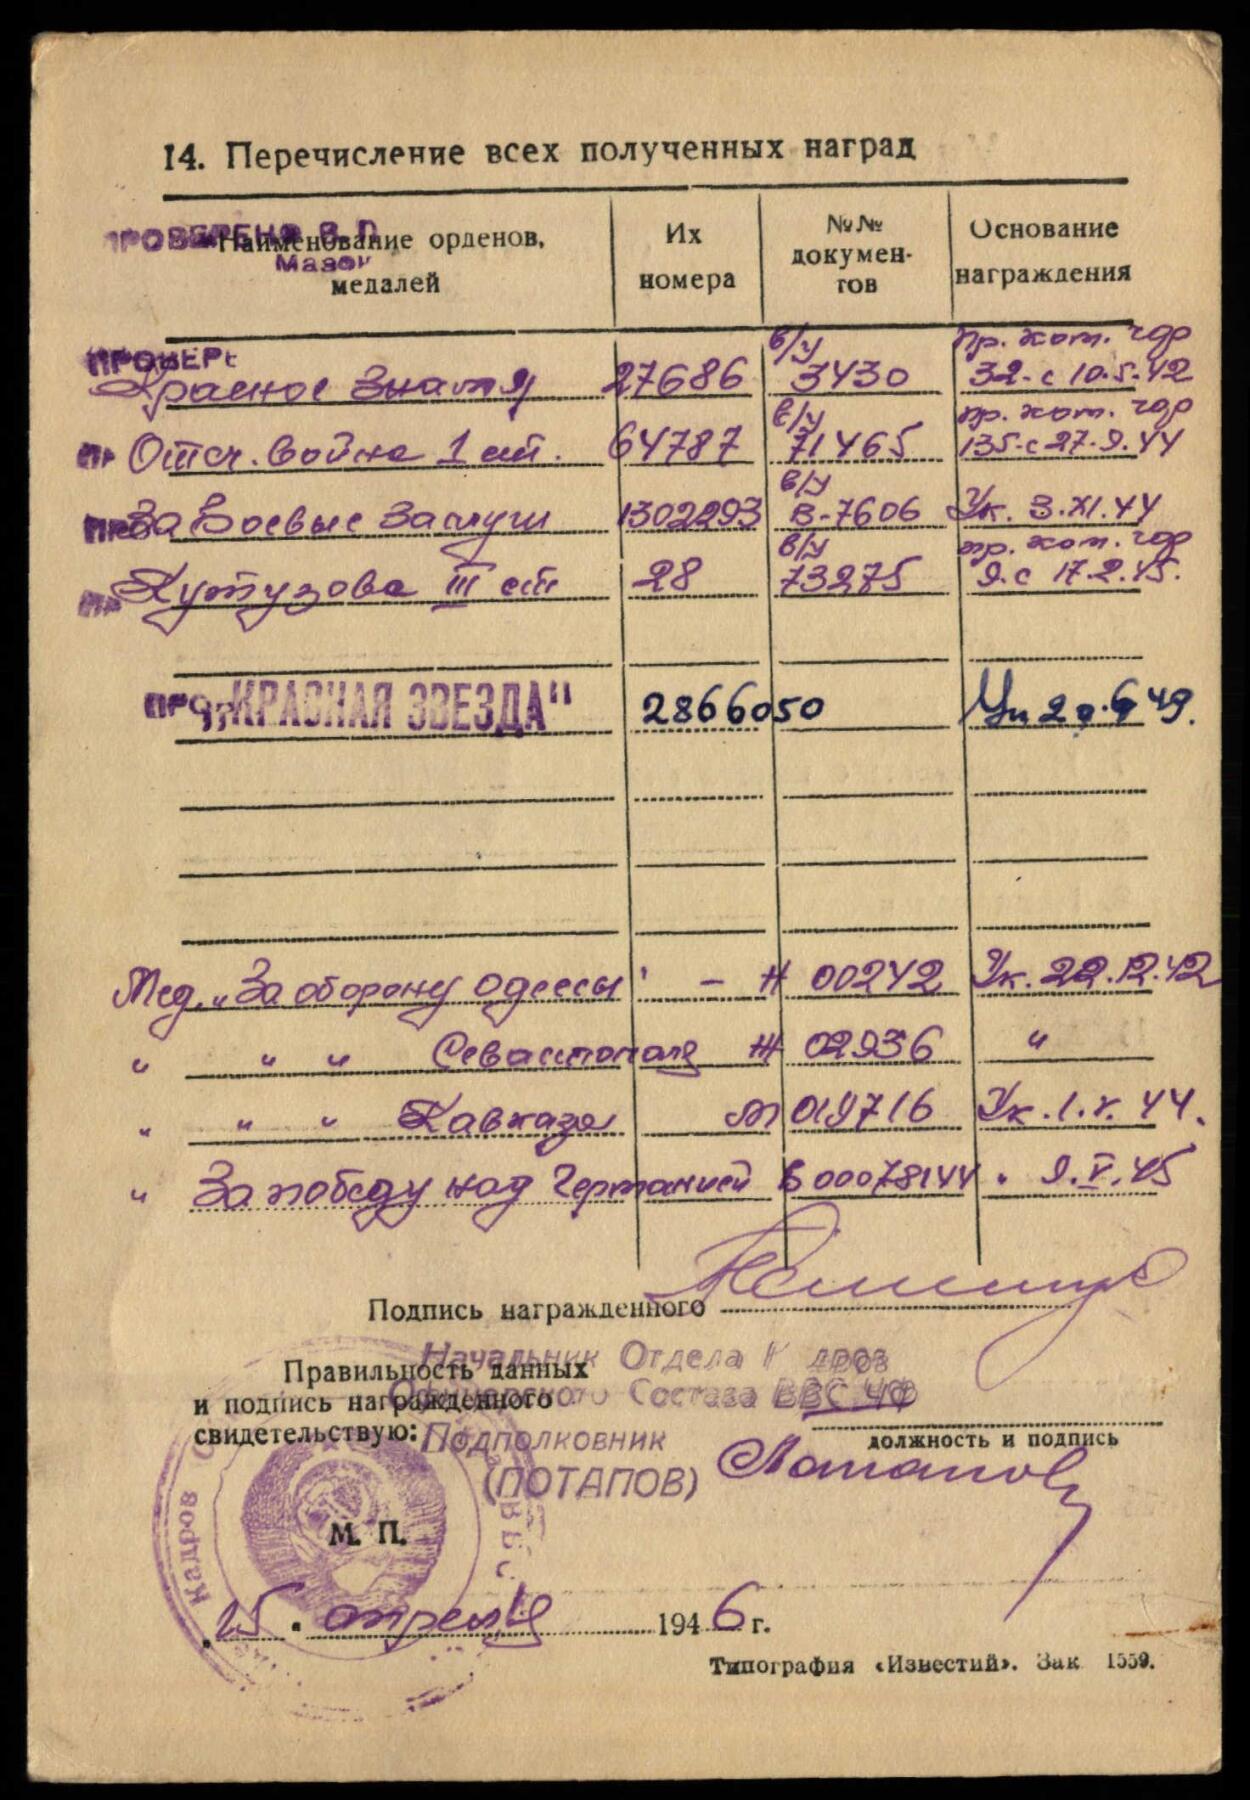 14. Перечисление всех полученных наград
ПРОВЕРЕНО В П
Наименование орденов, медалей Их номера №№ документов Основание награждения
ПРОВЕРЕ
Красное Знамя 27686 в/у 3430 пр. ком. чф 32-с 10.5.42
Пр Отеч. Война 1 ст. 64787 в/у 71465 пр. ком. чф 135-с 27.9.44
За Боевые Заслуги 1302293 в/у В-7606 Ук. 3.XI.44
Пр Кутузова III ст 28 в/у 73275 пр. ком. чф 9.с 17.2.45.
ПРО „КРАСНАЯ ЗВЕЗДА" 2866050 49.
Мед. „За оборону Одессы" – Н 00242 Ук. 22.12.42
" " " Севастополя Н 02936 "
" " " Кавказа М 019716 Ук. 1.V.44.
" За победу над Германией В 00078144 " 9.V.45
Подпись награжденного
Начальник Отдела Кадров
Офицерского Состава ВВС ЧФ
Правильность данных
и подпись награжденного
свидетельствую:
Подполковник
(ПОТАПОВ) Потапов
должность и подпись
Кадров
М. П.
„25" апреля 1946 г.
Типография «Известий». Зак 1559.